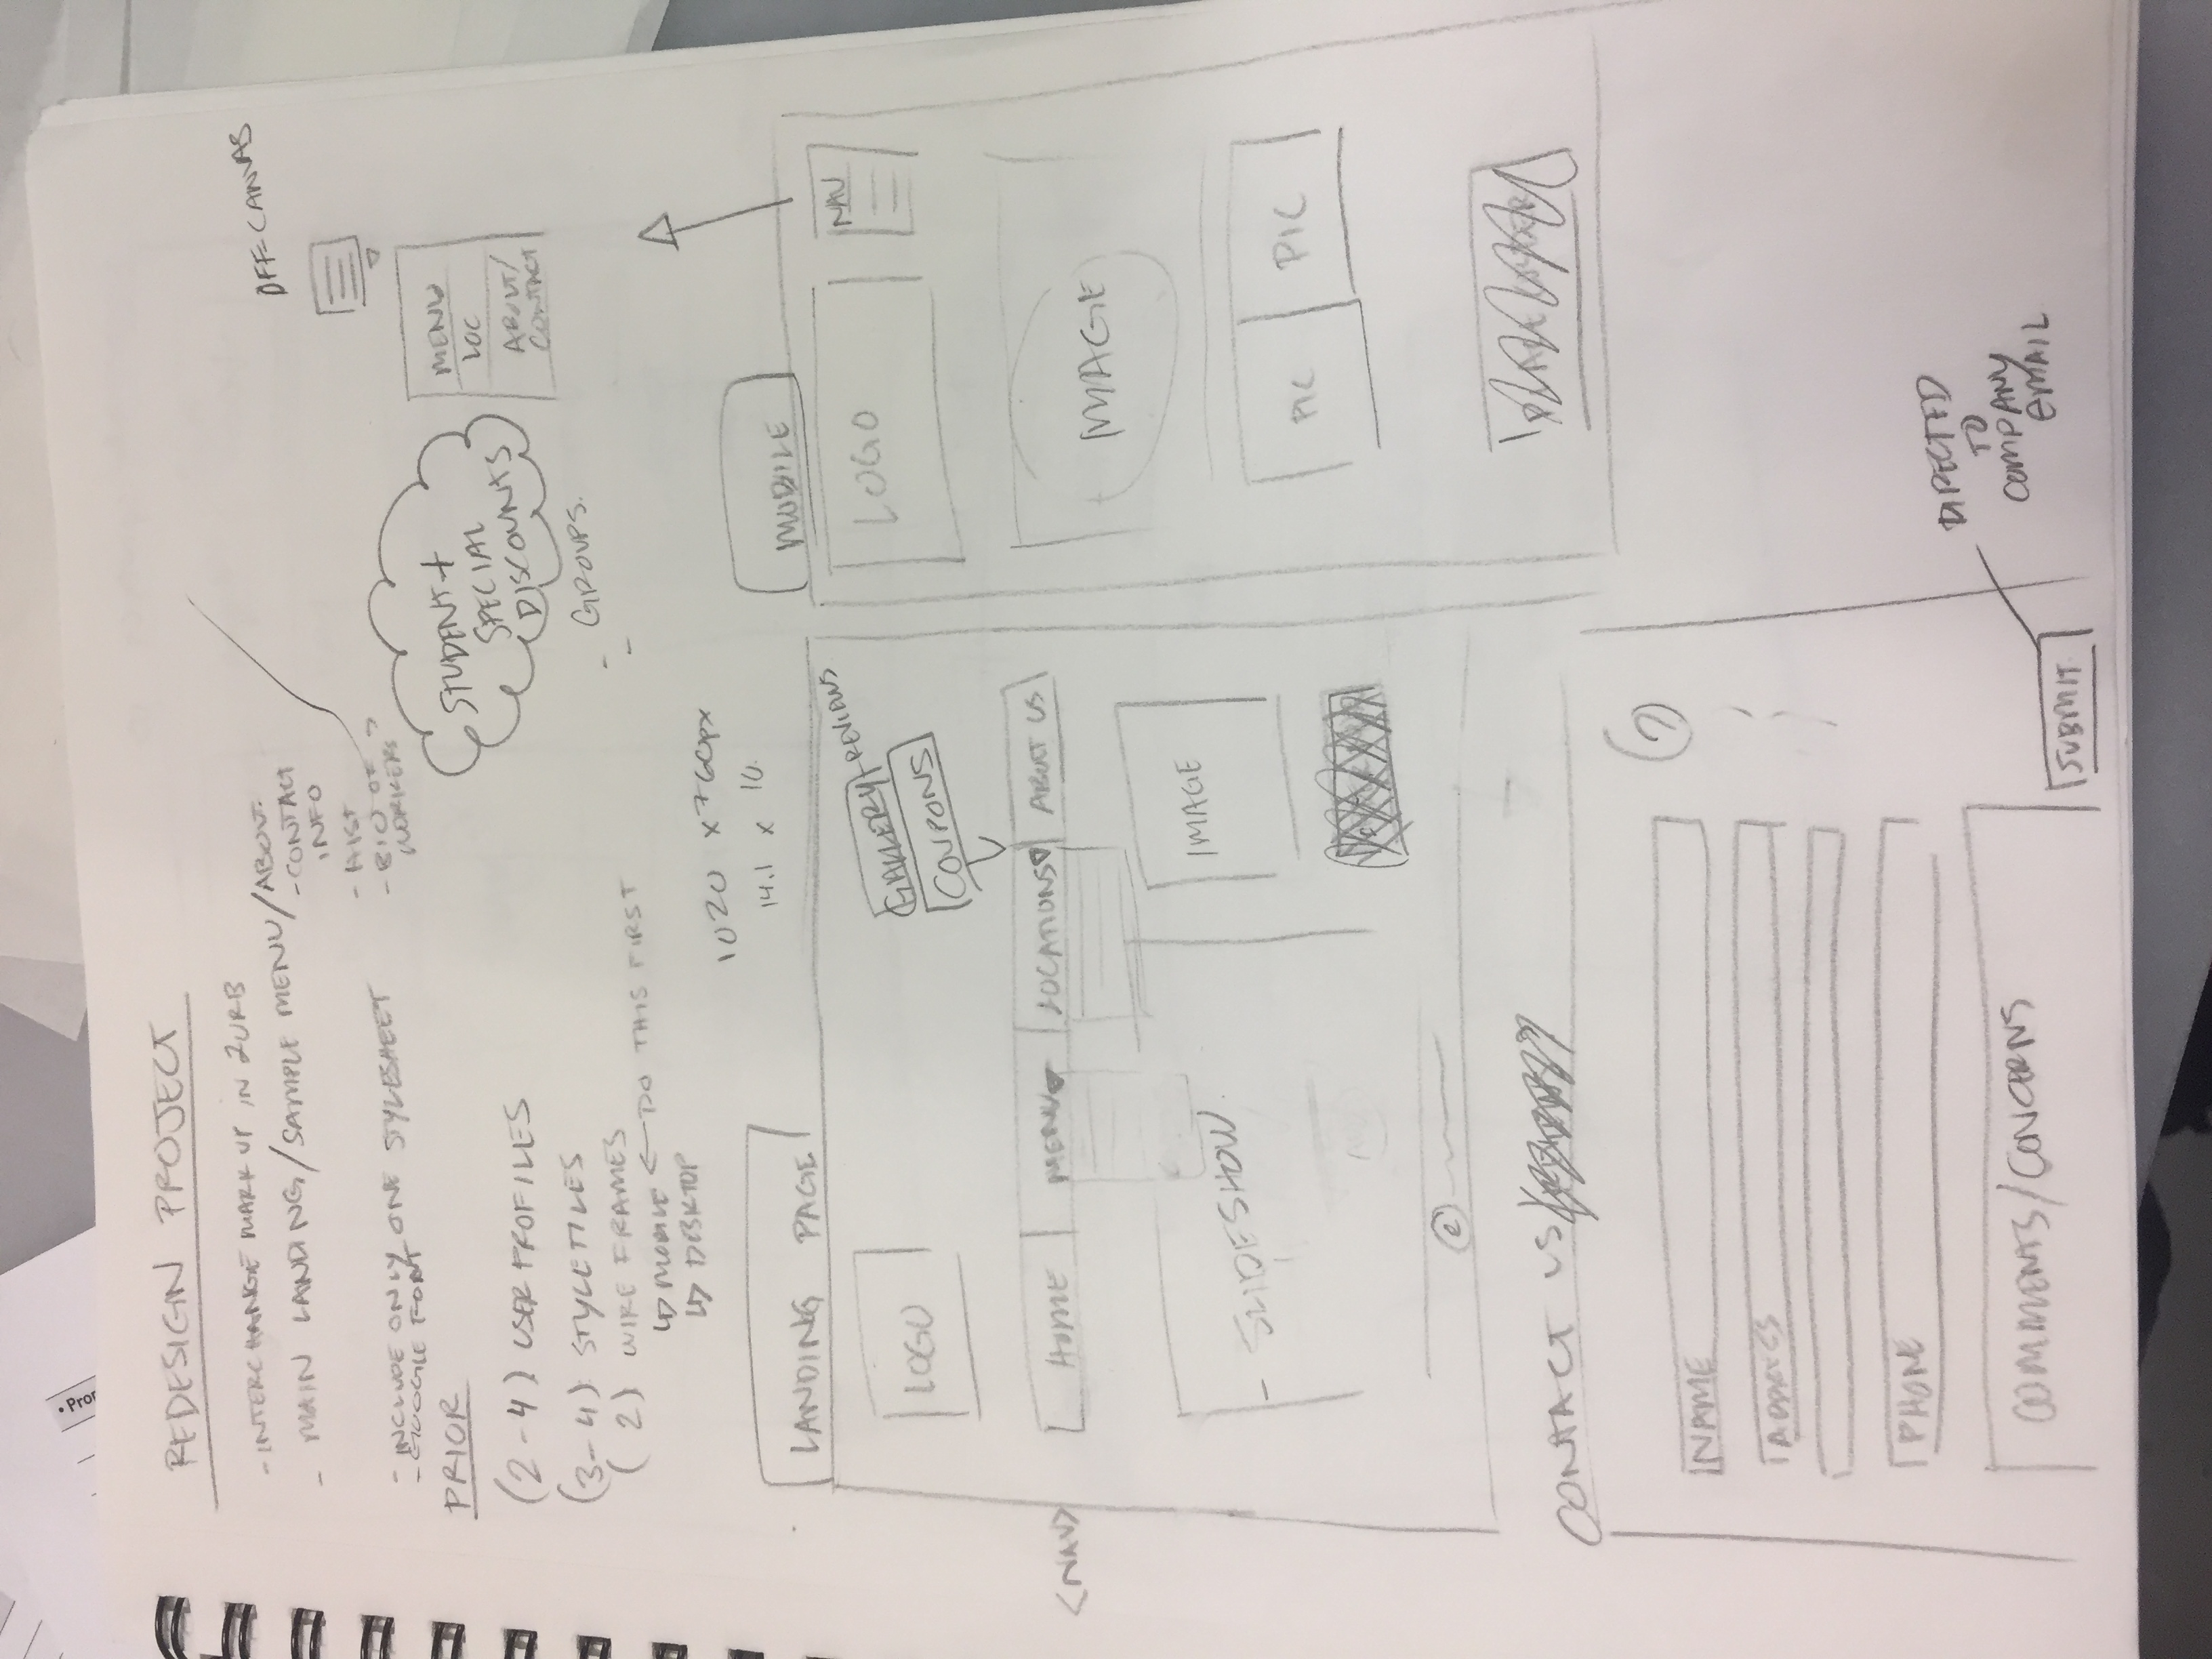 • Pror
REDESIGN PROJECT
- INTERCHANGE MARK UP IN ZURB
- MAIN LANDING/SAMPLE MENU/ABOUT
- CONTACT
INFO
- HIST
- BIO OF
WORKERS
- INCLUDE ONLY ONE STYLESHEET
- GOOGLE FONT
PRIOR
(2-4) USER PROFILES
(3-4) STYLETILES
(2) WIRE FRAMES
↳ MOBILE ← DO THIS FIRST
↳ DESKTOP
OFF-CANVAS
MENU
LOC
ABOUT/
CONTACT
STUDENT +
SPECIAL
DISCOUNTS
- GROUPS.
-
1020 x 760px
14.1 x 10.
LANDING PAGE
LOGO
GALLERY-REVIEWS
COUPONS
<NAV>
HOME
MENU
LOCATIONS
ABOUT US
SLIDESHOW
IMAGE
©
MOBILE
LOGO
NAV
IMAGE
PIC
PIC
CONTACT US
NAME
ADDRESS
PHONE
COMMENTS/CONCERNS
?
SUBMIT
DIRECTED
TO
COMPANY
EMAIL